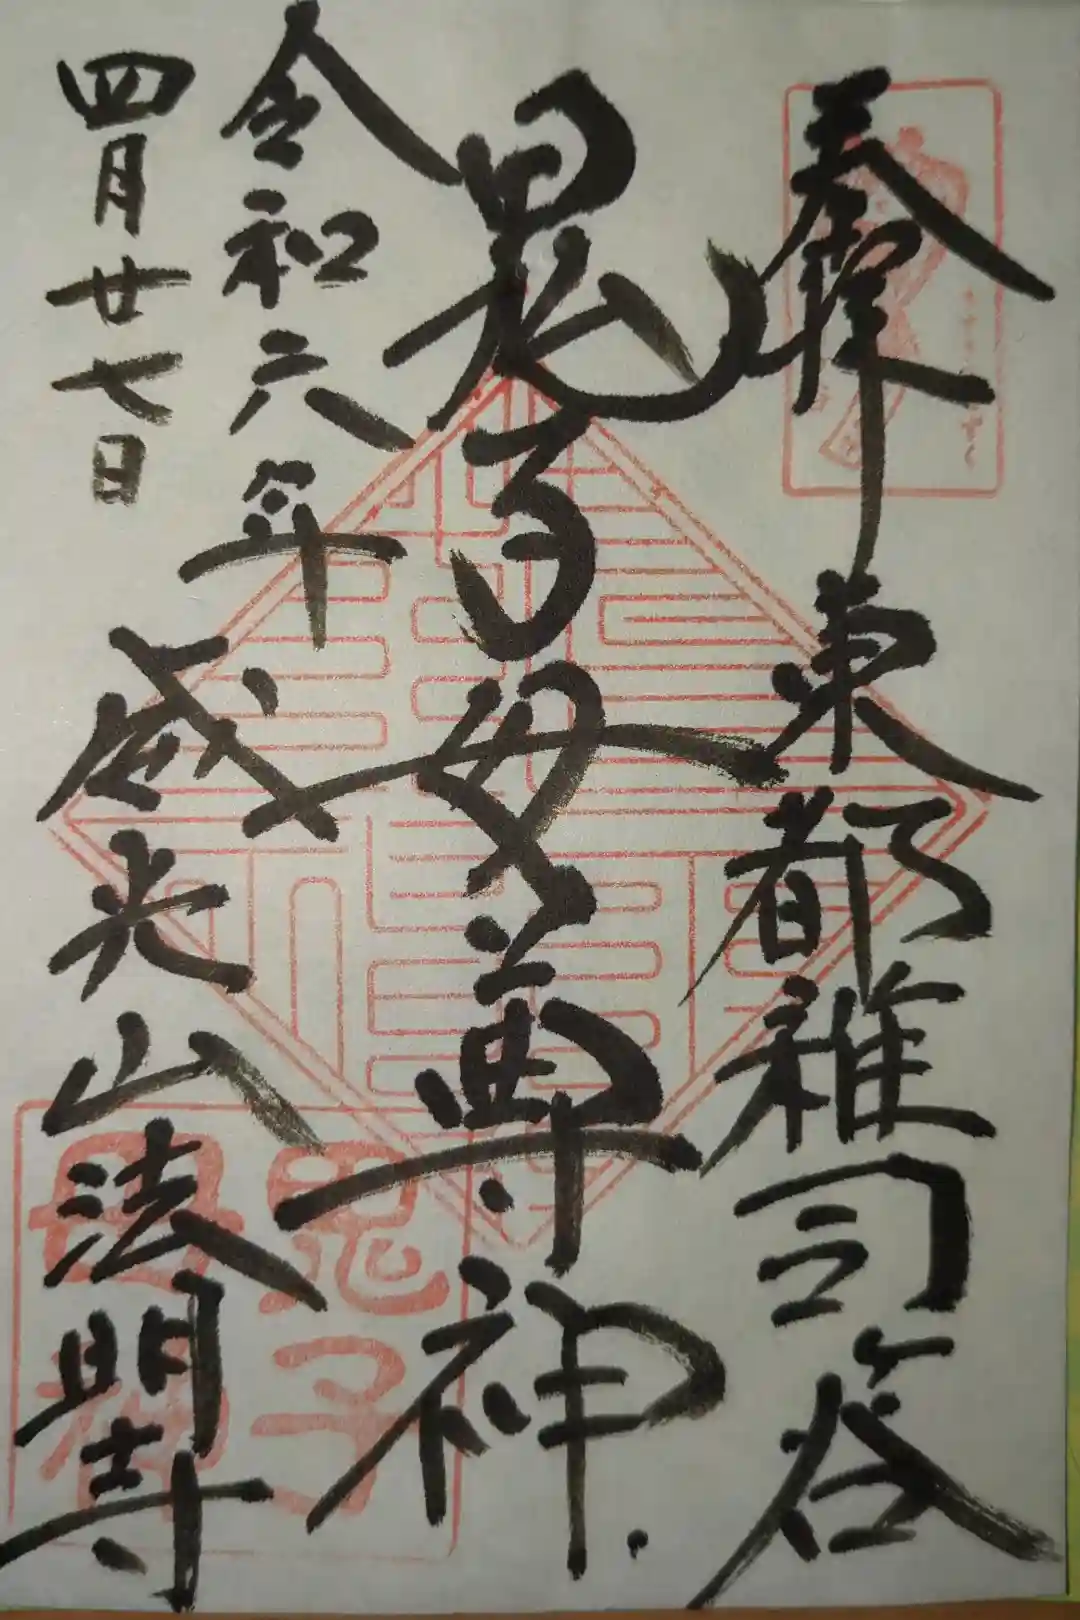 奉拝 東都雑司谷
鬼子母尊神
令和六年
四月廿七日
威光山法明寺
鬼子
母神